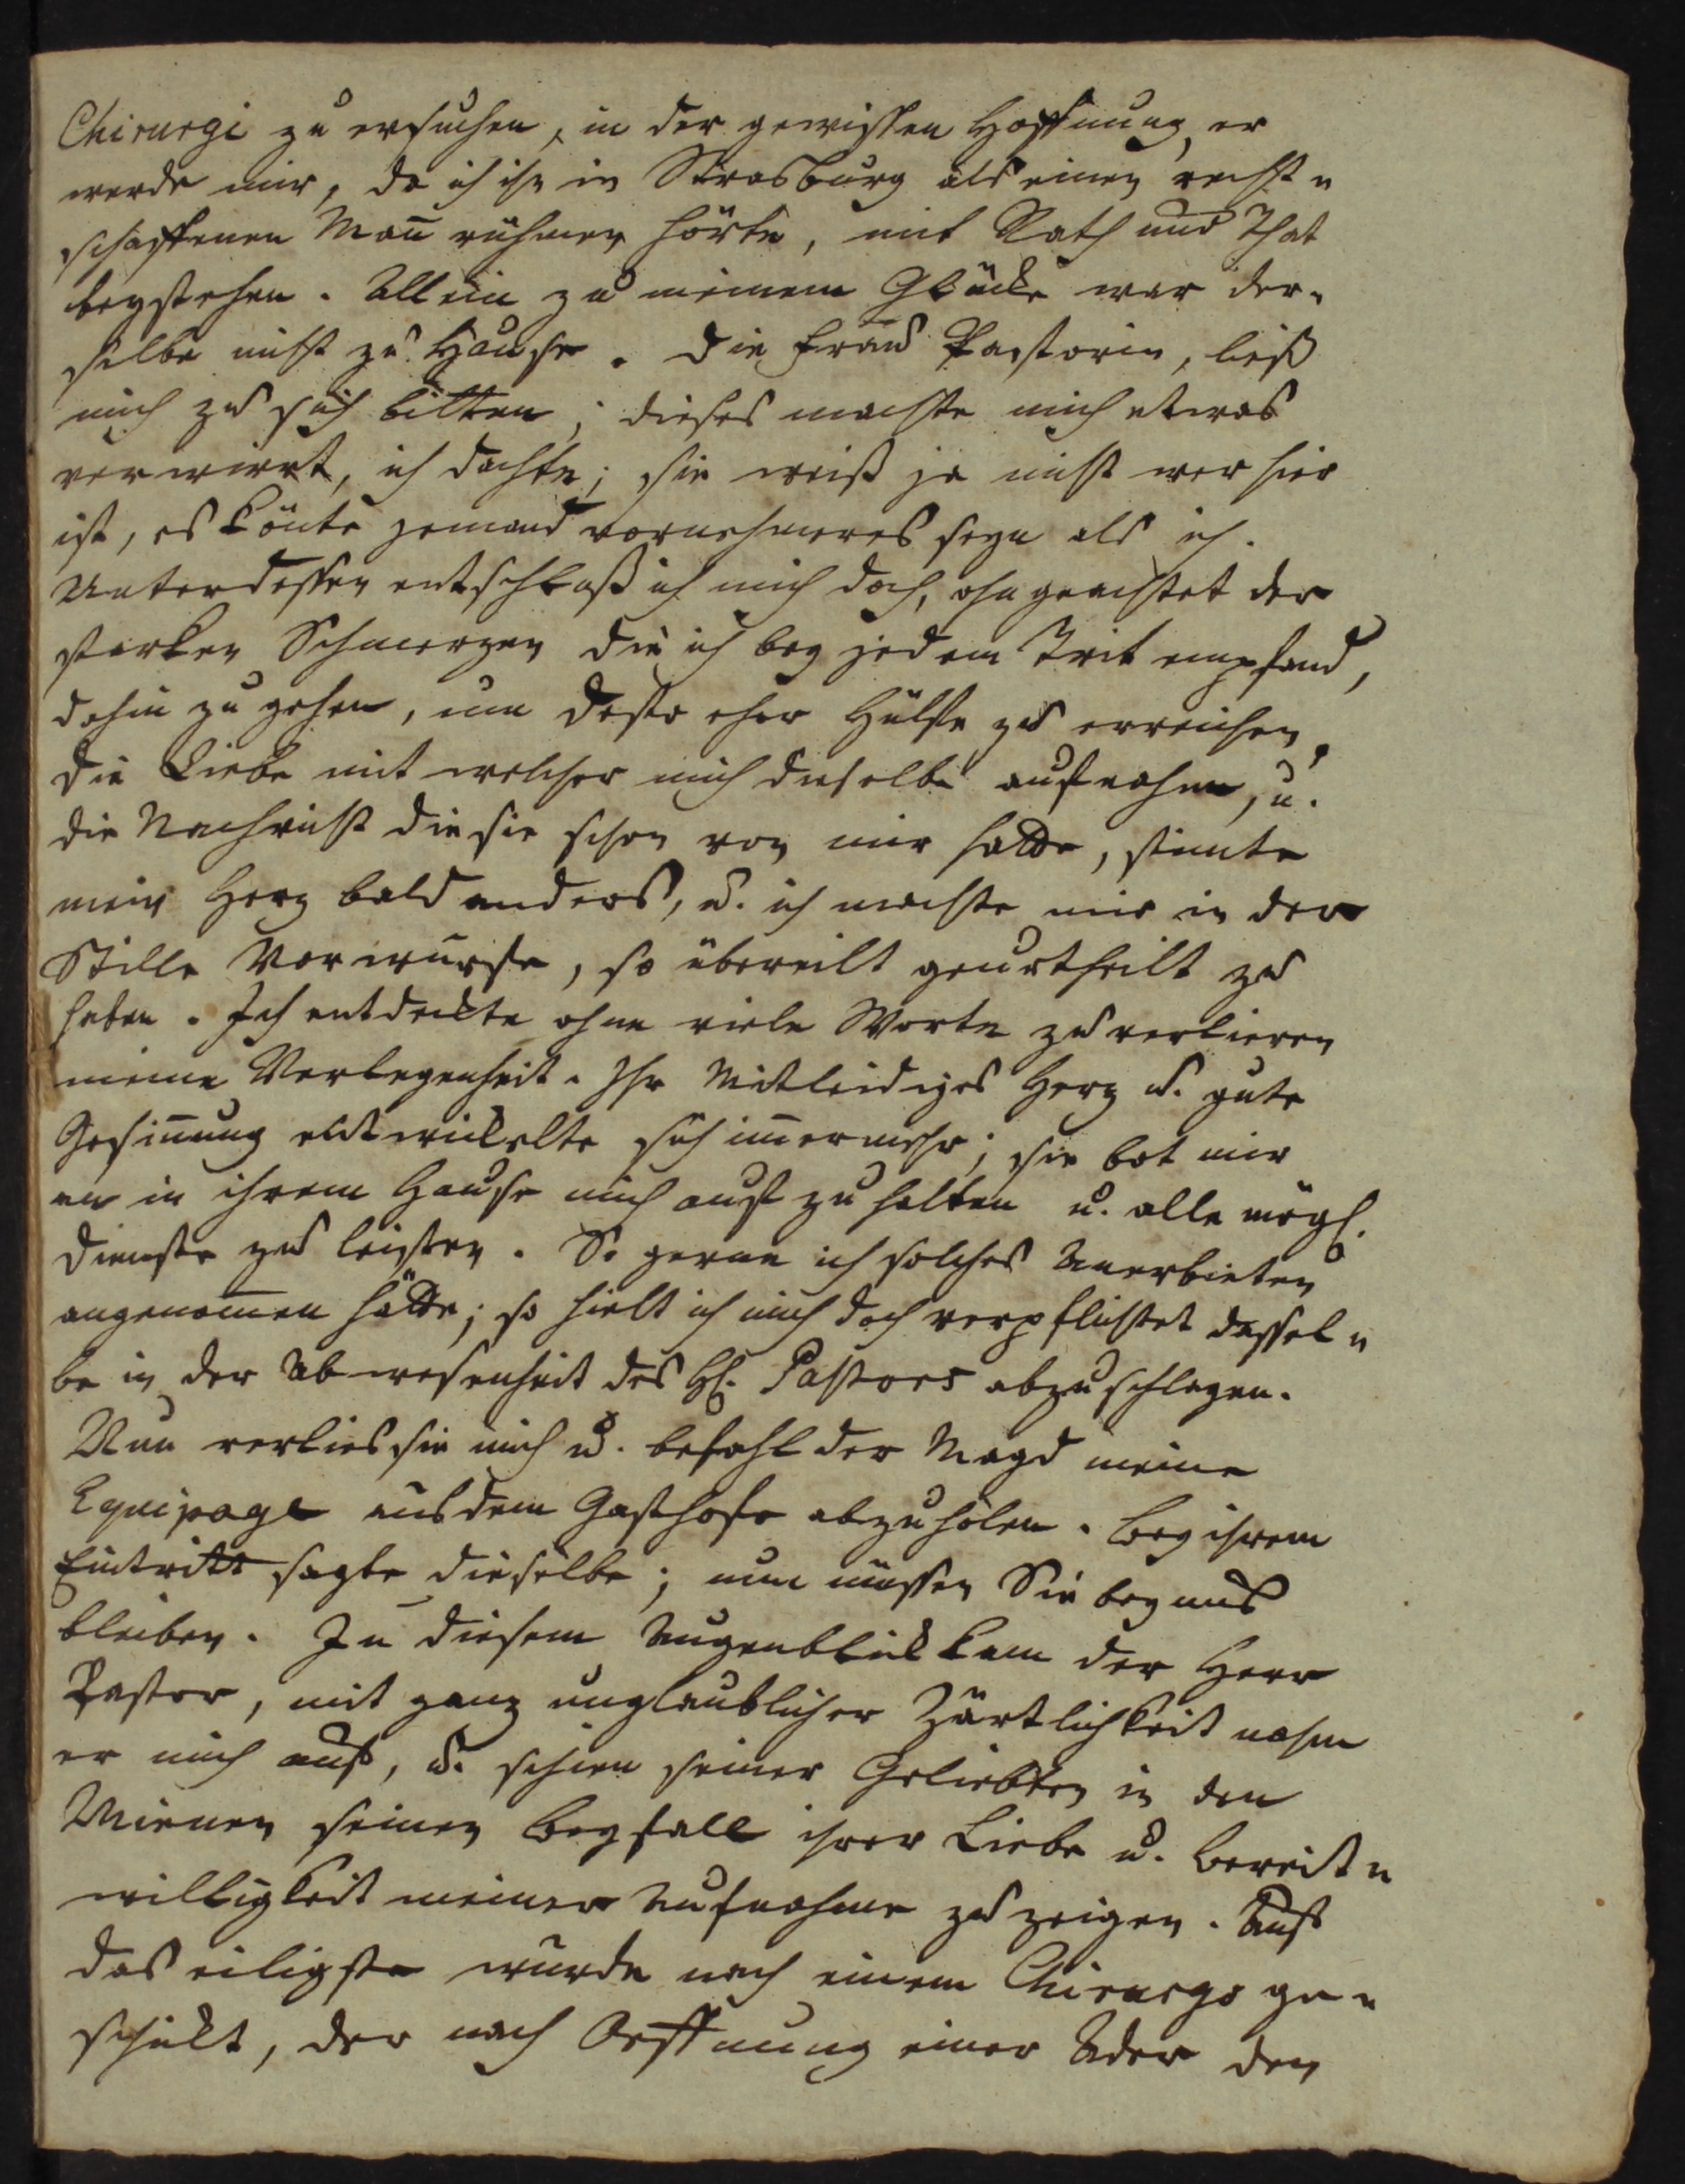 Chirurgi zu ersuchen, in der gewissen Hoffnung, er
werde mir, da ich ihn in Strasburg als einen recht-
schaffenen Mañ rühmen hörte, mit Rath und That
beystehen. Allein zu meinem Glücke war der-
selbe nicht zu Hause. Die Frau Pastorin, ließ
mich zu sich bitten; dieses machte mich etwas
verwirrt, ich dachte; sie weiß ja nicht wer hier
ist, es könte jemand vornehmeres seyn als ich.
Unterdessen entschloß ich mich doch, ohngeachtet der
starken Schmerzen die ich bey jedem Trit empfand,
dahin zu gehen, um desto eher Hülfe zu erreichen.
Die Liebe mit welcher mich dieselbe aufnahm, u.
die Nachricht die sie schon von mir hatte, stim̄te
mein Herz bald anders, u. ich machte mir in der
Stille Vorwürfe, so übereilt geurtheilt zu
haben. Ich entdeckte ohne viele Worte zu verlieren
meine Verlegenheit. Ihr Mitleidiges Herz u. gute
Gesin̄ung entwickelte sich im̄ermehr; sie bot mir
an in ihrem Hause mich auf zu halten u. alle mögl.
Dienste zu leisten. So gerne ich solches Anerbieten
angenom̄en hätte; so hielt ich mich doch verpflichtet dassel-
be in der Abwesenheit des H. Pastors abzuschlagen.
Nun verlies sie mich u. befahl der Magd meine
Equipage aus dem Gasthofe abzuholen. Bey ihrem
Eintritt sagte dieselbe; nun müssen Sie bey uns
bleiben. In diesem Augenblick kam der Herr
Pastor, mit ganz unglaublicher Zärtlichkeit nahm
er mich auf, u. schien seiner Geliebten in den
Mienen seinen Beyfall ihrer Liebe u. Bereit-
willigkeit meiner Aufnahme zu zeigen. Auf
das eiligste wurde nach einem Chirurgo ge-
schikt, der nach Oeffnung einer Ader den